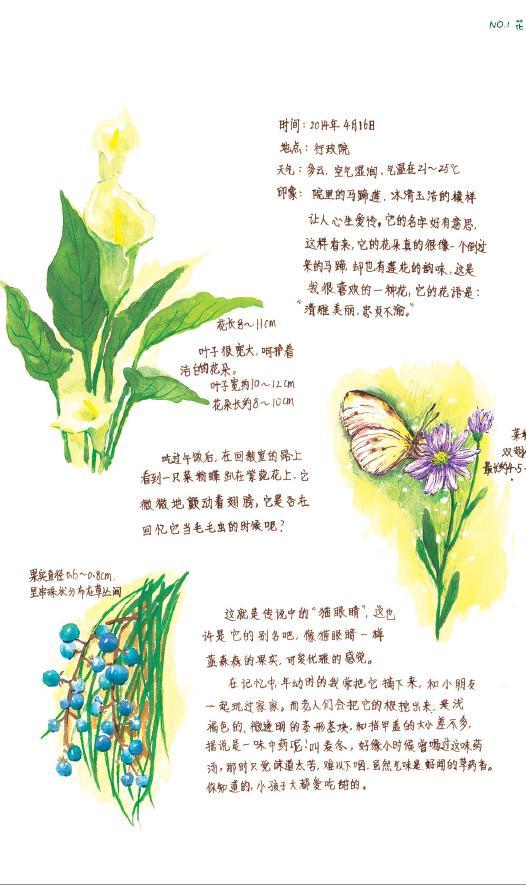 NO.1 花
时间：2014年4月16日
地点：行政院
天气：多云，空气湿润，气温在21～25℃
印象：院里的马蹄莲，冰清玉洁的模样
让人心生爱怜。它的名字好有意思，
这样看来，它的花朵真的很像一个倒过
来的马蹄，却也有莲花的韵味，这是
我很喜欢的一种花，它的花语是：
“清雅美丽，忠贞不渝。”
花长8～11cm
叶子很宽大，呵护着
洁白的花朵。
叶子宽约10～12cm
花朵长约8～10cm
吃过午饭后，在回教室的路上
看到一只菜粉蝶趴在紫菀花上，它
微微地颤动着翅膀，它是否在
回忆它当毛毛虫的时候呢？
菜粉
双翅
最长约4-5
果实直径0.6～0.8cm，
呈串珠状分布在草丛间
这就是传说中的“猫眼睛”，这也
许是它的别名吧，像猫眼睛一样
蓝森森的果实，可爱优雅的感觉。
在记忆中，年幼时的我常把它摘下来，和小朋友
一起玩过家家。而老人们会把它的根挖出来，是浅
褐色的、微透明的茎形茎块，和指甲盖的大小差不多，
据说是一味中药呢！叫麦冬，好像小时候曾喝过这味药
汤，那时只觉味道太苦，难以下咽，虽然气味是好闻的草药香。
你知道的，小孩子大都爱吃甜的。